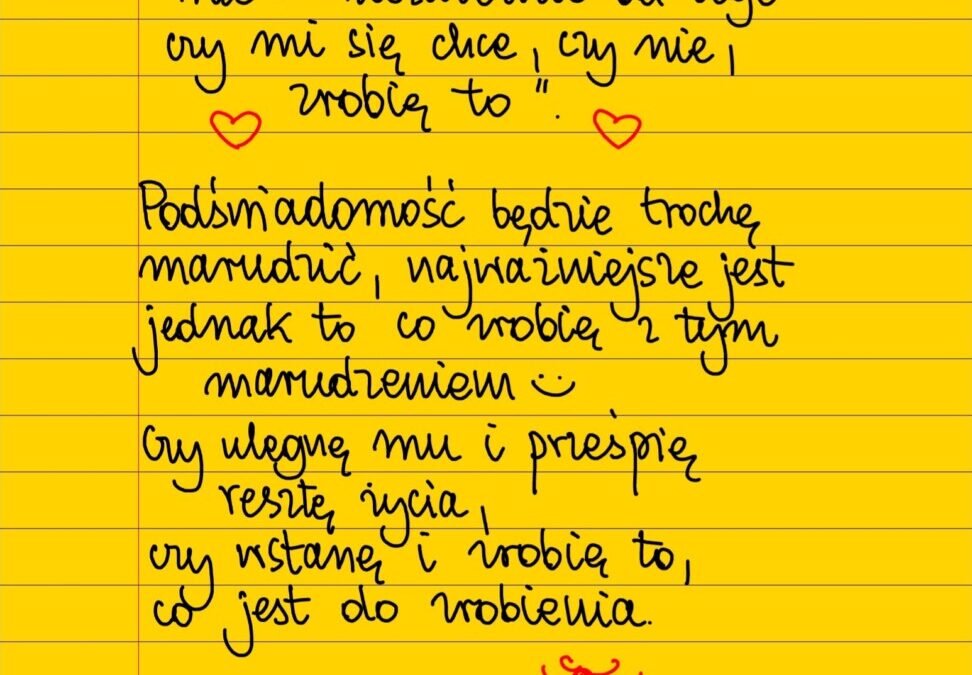 czy mi się chce, czy nie,
zrobię to".
Podświadomość będzie trochę
marudzić, najważniejsze jest
jednak to co zrobię z tym
marudzeniem
Czy ulęgnę mu i prześpię
resztę życia,
czy wstanę i zrobię to,
co jest do zrobienia.